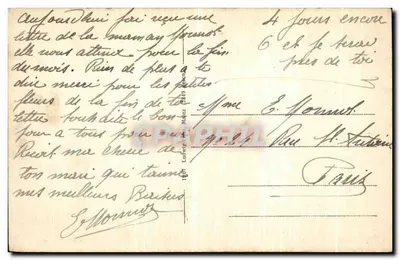 Aujourd'hui j'ai reçu une
lettre de la maman Monnot
elle nous attend pour la fin
du mois. Rien de plus a te
dire merci pour les petites
fleurs de la fin de ta
lettre souhaite le bon
jour a tous pour moi
Reçoit ma chere de
ton mari qui t'aime
mes meilleurs Baisers
E Monnot
4 jours encore
6 et je serai
pres de toi
Mme E. Monnot
Rue St Antoine
Paris